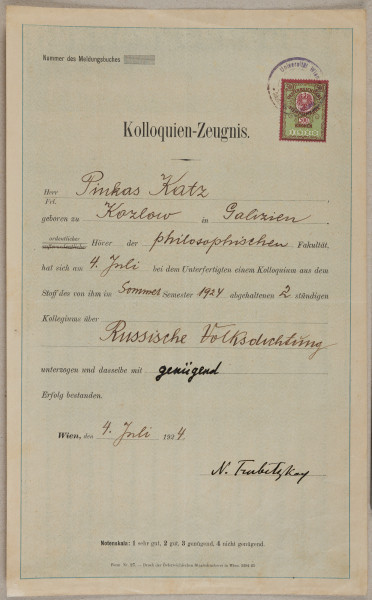 Nummer des Meldungsbuches
Universität Wien
Kolloquien-Zeugnis.
Herr Pinkas Katz
Frl.
geboren zu Kozlow in Galizien
ordentlicher
Hörer der philosophischen Fakultät,
hat sich am 4. Juli bei dem Unterfertigten einem Kolloquium aus dem
Stoff des von ihm im Sommer Semester 1924 abgehaltenen 2 stündigen
Kollegiums über
Russische Volksdichtung
unterzogen und dasselbe mit genügend
Erfolg bestanden.
Wien, den 4. Juli 1924.
N. Trubetzkoy
Notenskala: 1 sehr gut, 2 gut, 3 genügend, 4 nicht genügend.